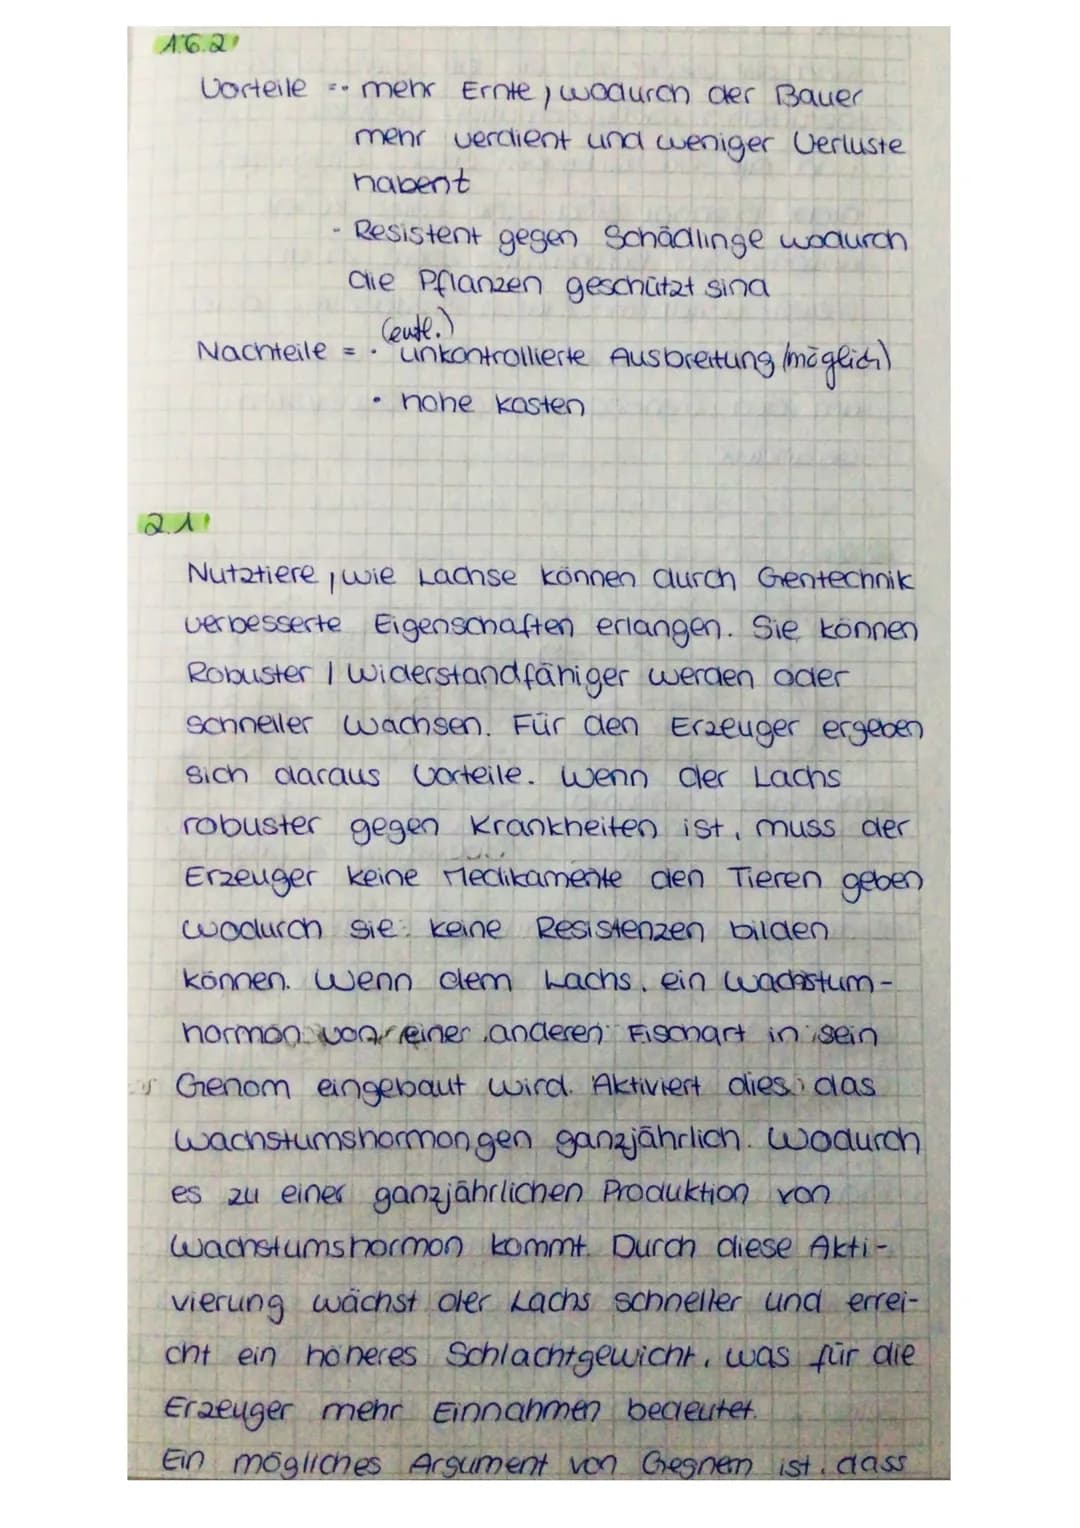 1.6.2
Vorteile =- mehr Ernte, wodurch der Bauer
mehr verdient und weniger Verluste
habent
- Resistent gegen Schädlinge wodurch
die Pflanzen geschützt sind
(evtl.)
Nachteile = • unkontrollierte Ausbreitung (möglich)
• hohe kosten
2.1
Nutztiere, wie Lachse können durch Gentechnik
verbesserte Eigenschaften erlangen. Sie können
Robuster / widerstandfähiger werden oder
schneller wachsen. Für den Erzeuger ergeben
sich daraus Vorteile. Wenn der Lachs
robuster gegen Krankheiten ist, muss der
Erzeuger keine Medikamente den Tieren geben
wodurch sie keine Resistenzen bilden
können. Wenn dem Lachs, ein Wachstum-
hormon von einer anderen Fischart in sein
Genom eingebaut wird. Aktiviert dies das
Wachstumshormongen ganzjährlich. Wodurch
es zu einer ganzjährlichen Produktion von
Wachstumshormon kommt. Durch diese Akti-
vierung wächst der Lachs schneller und errei-
cht ein höheres Schlachtgewicht, was für die
Erzeuger mehr Einnahmen bedeutet.
Ein mögliches Argument von Gegnern ist, dass